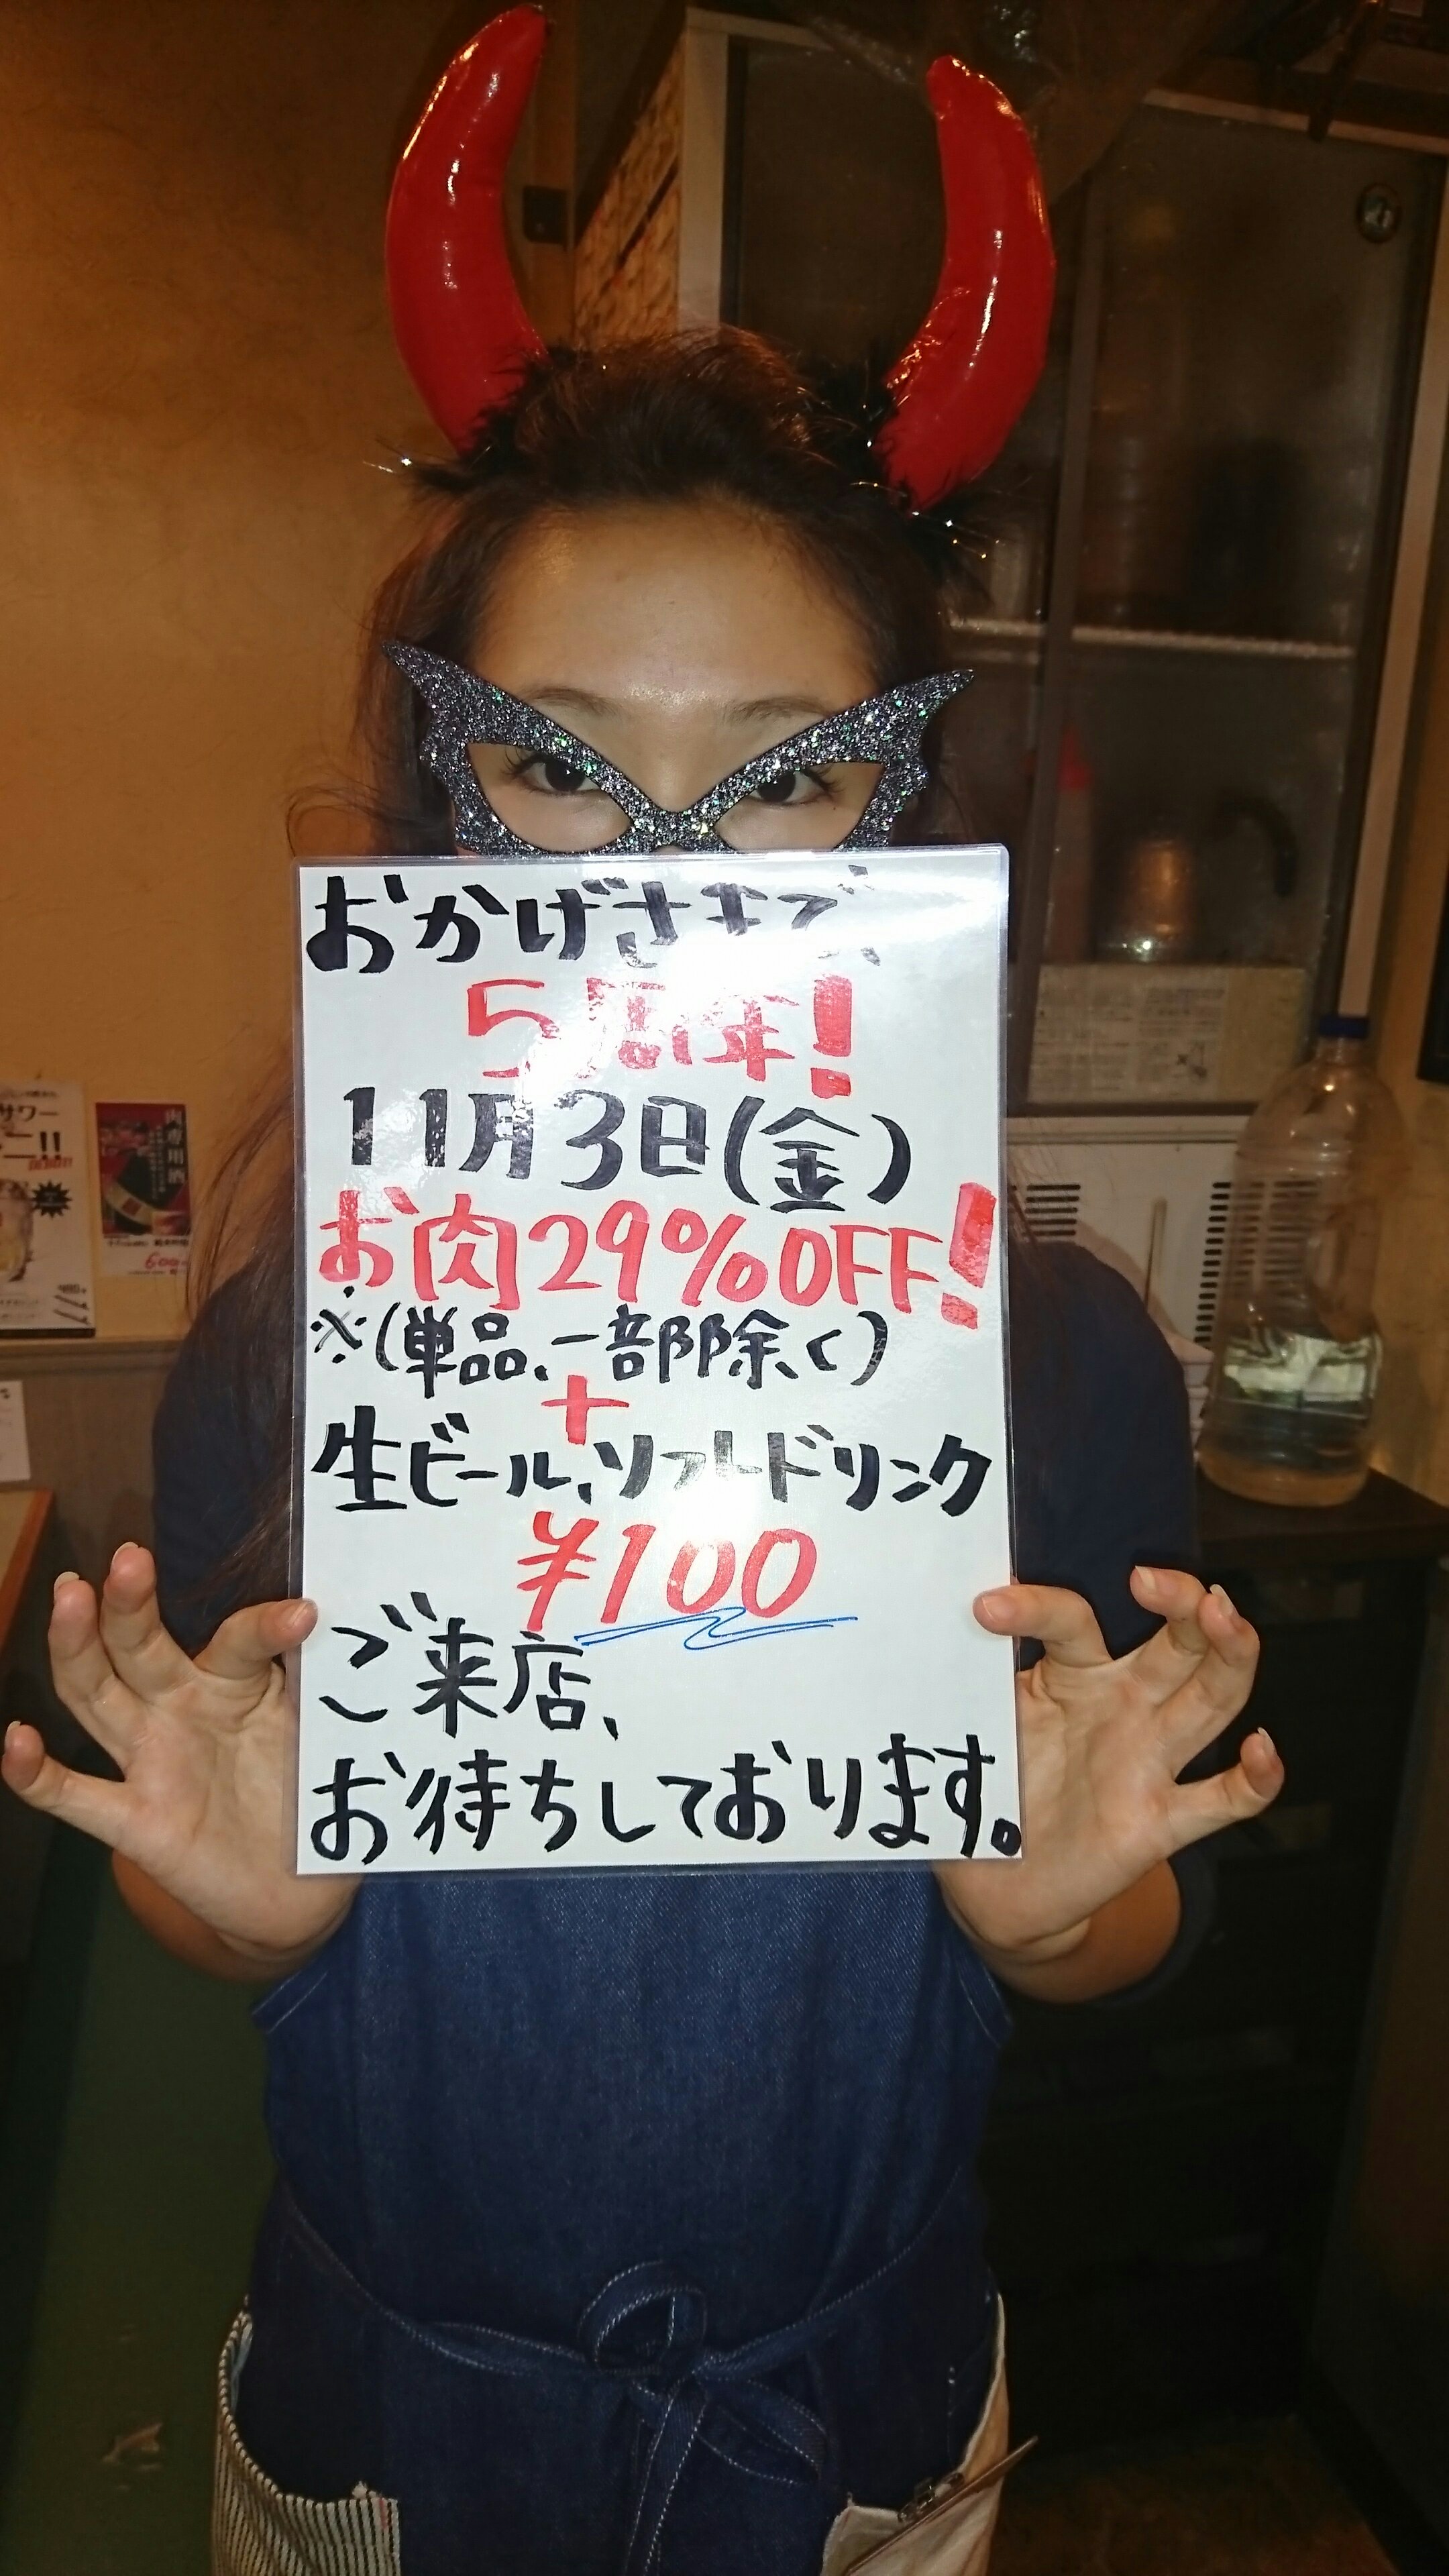 おかげさまで、
5周年!
11月3日(金)
お肉29%OFF!
※(単品、一部除く)
+
生ビール、ソフトドリンク
¥100
ご来店、
お待ちしております。
サワー
肉専用酒
600-